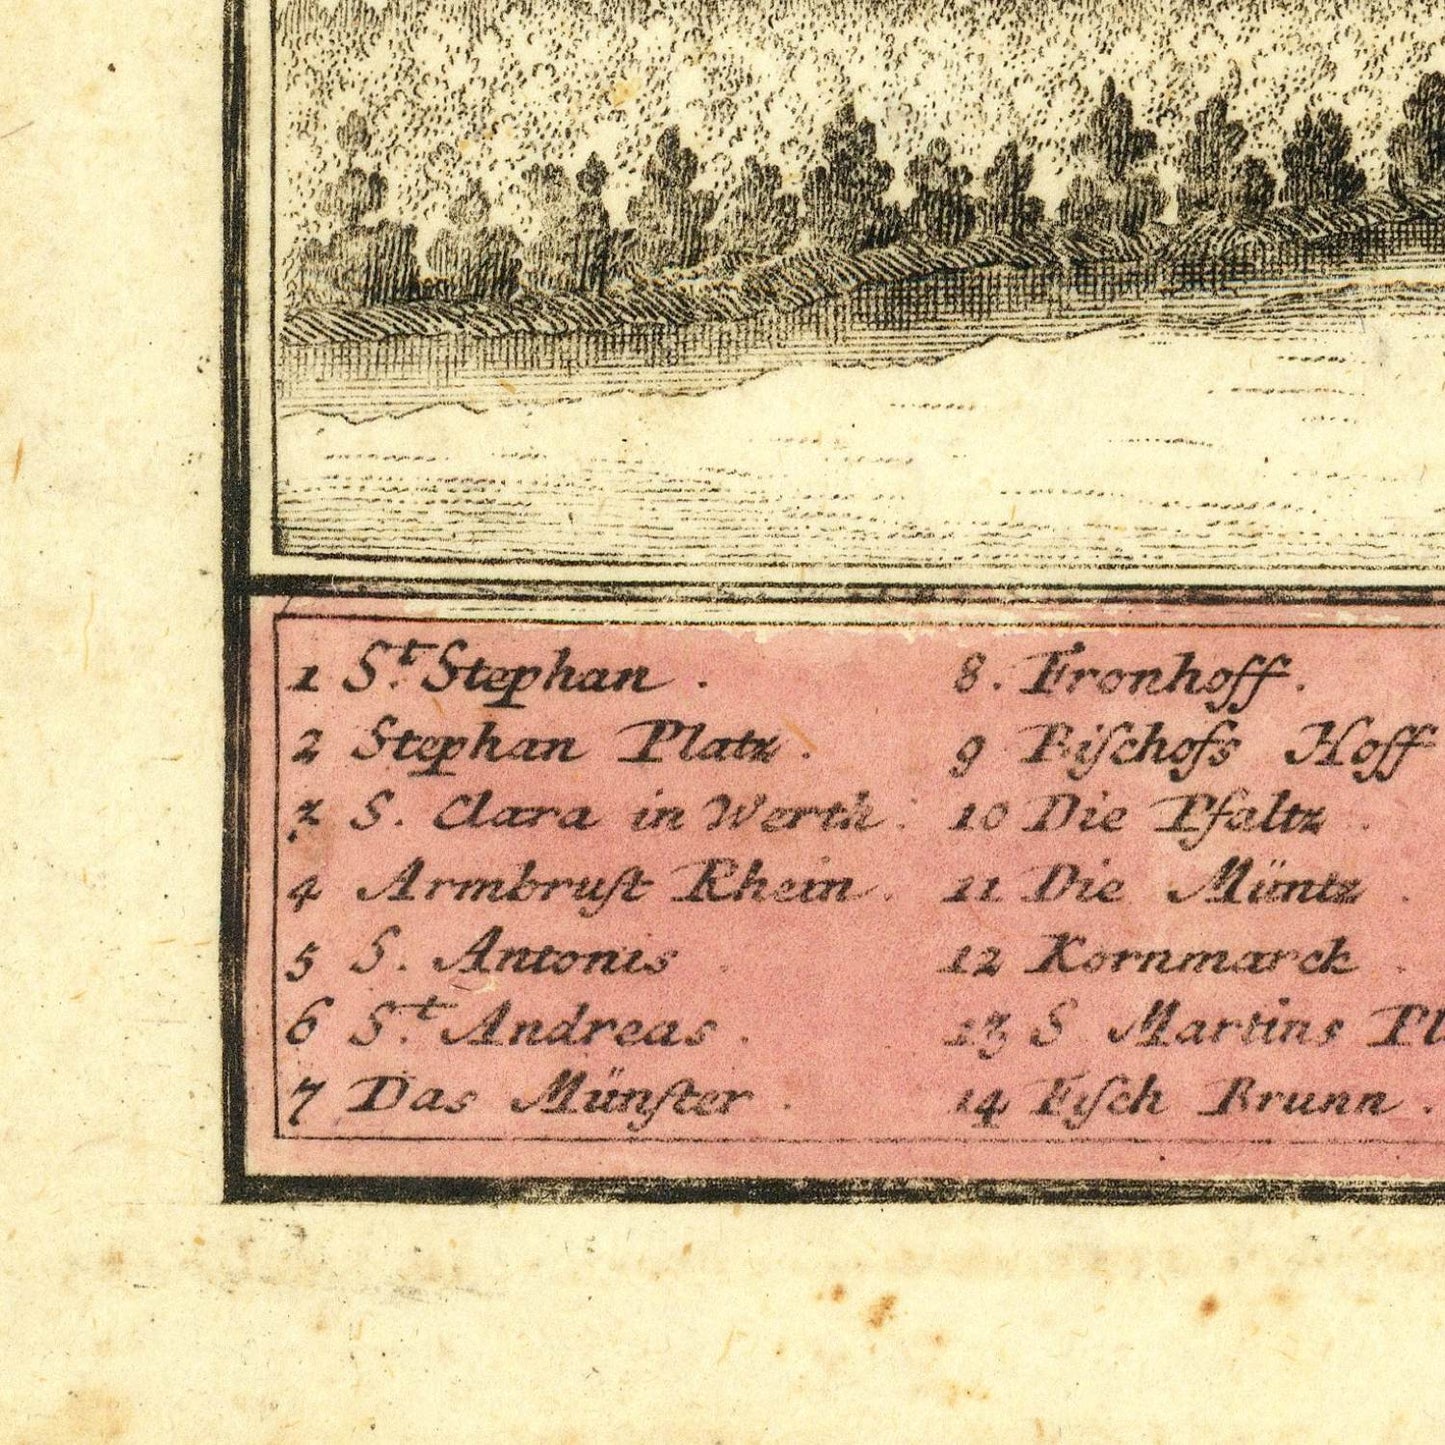 1 St. Stephan.
2 Stephan Platz.
3 S. Clara in Werth.
4 Armbruſt Rhein.
5 S. Antonis
6 St. Andreas.
7 Das Münſter.
8. Fronhoff.
9 Biſchofs Hoff
10 Die Pfaltz.
11 Die Müntz.
12 Kornmarck.
13 S Martins Pl
14 Fiſch Brunn.